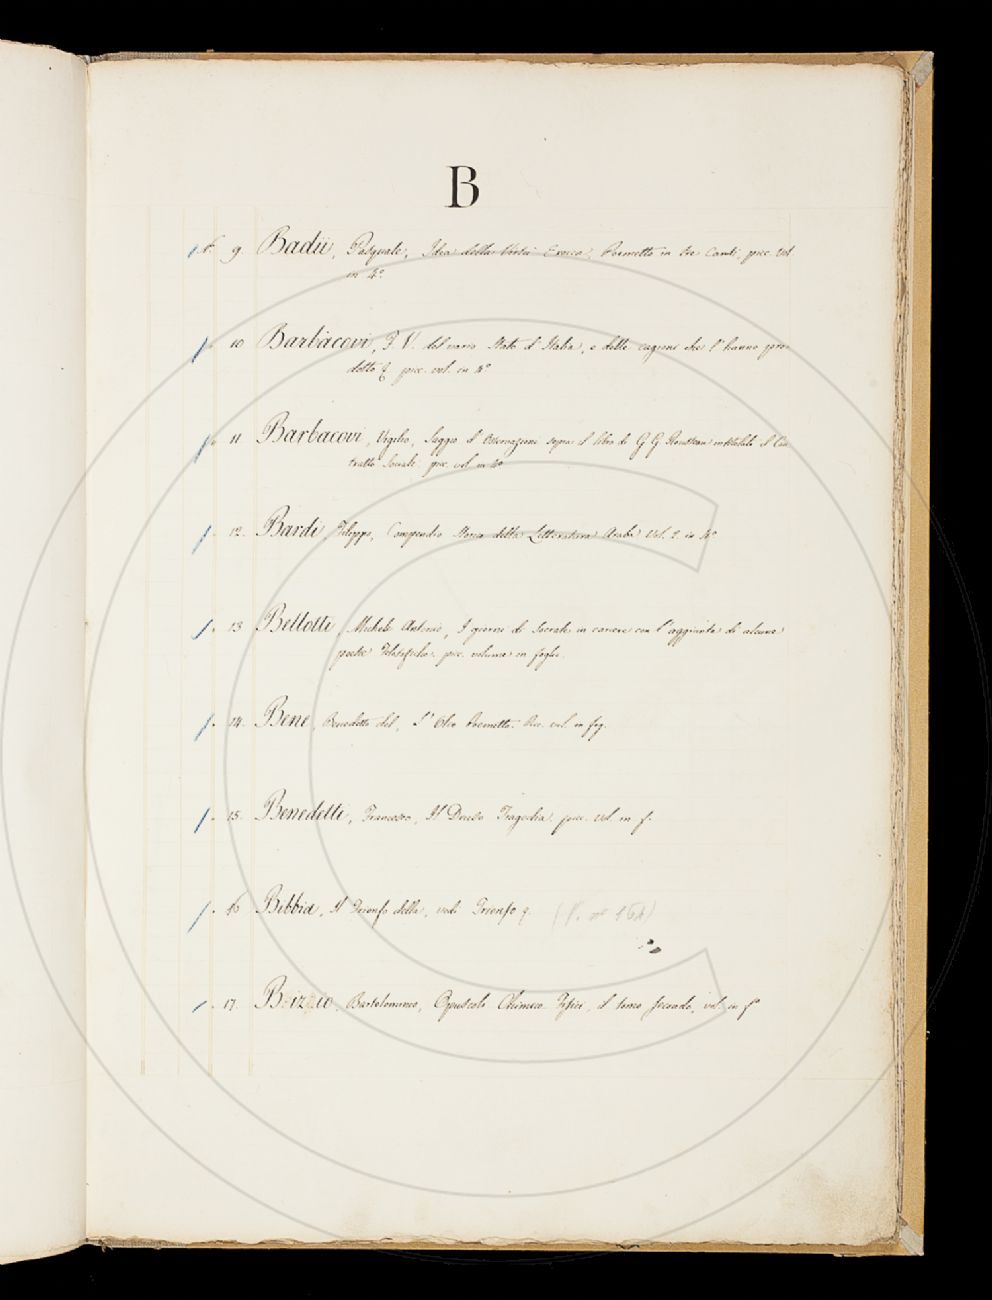 B
9. Badii, Pasquale, Idea della Virtù Eroica, Poemetto in tre Canti, picc. vol.
in 4.º
10 Barbacovi, F. V. del vario Stato d'Italia, e delle cagioni che l'hanno pro-
dotto picc. vol. in 4º
11 Barbacovi, Vigilio, Saggio d'Osservazioni sopra il libro di G. G. Rousseau intitolato il Con-
tratto Sociale. picc. vol. in 4º
12. Bardi, Filippo, Compendio Storia della Letteratura Araba Vol. 2. in 4º
13 Bellotti, Michele Antonio, I giorni di Socrate in carcere con l'aggiunta di alcune
picc. volume in foglio.
14. Bene, Benedetto del, L'Olivo Poemetto. Picc. vol. in fog.
15. Benedetti, Francesco, Il Druso Tragedia. picc. vol. in f.
16 Bibbia, Il Trionfo della, vedi Trionfo (V. nº 164)
17. Bizio, Bartolommeo, Opuscoli Chimico Fisici, il tomo secondo, vol. in fº